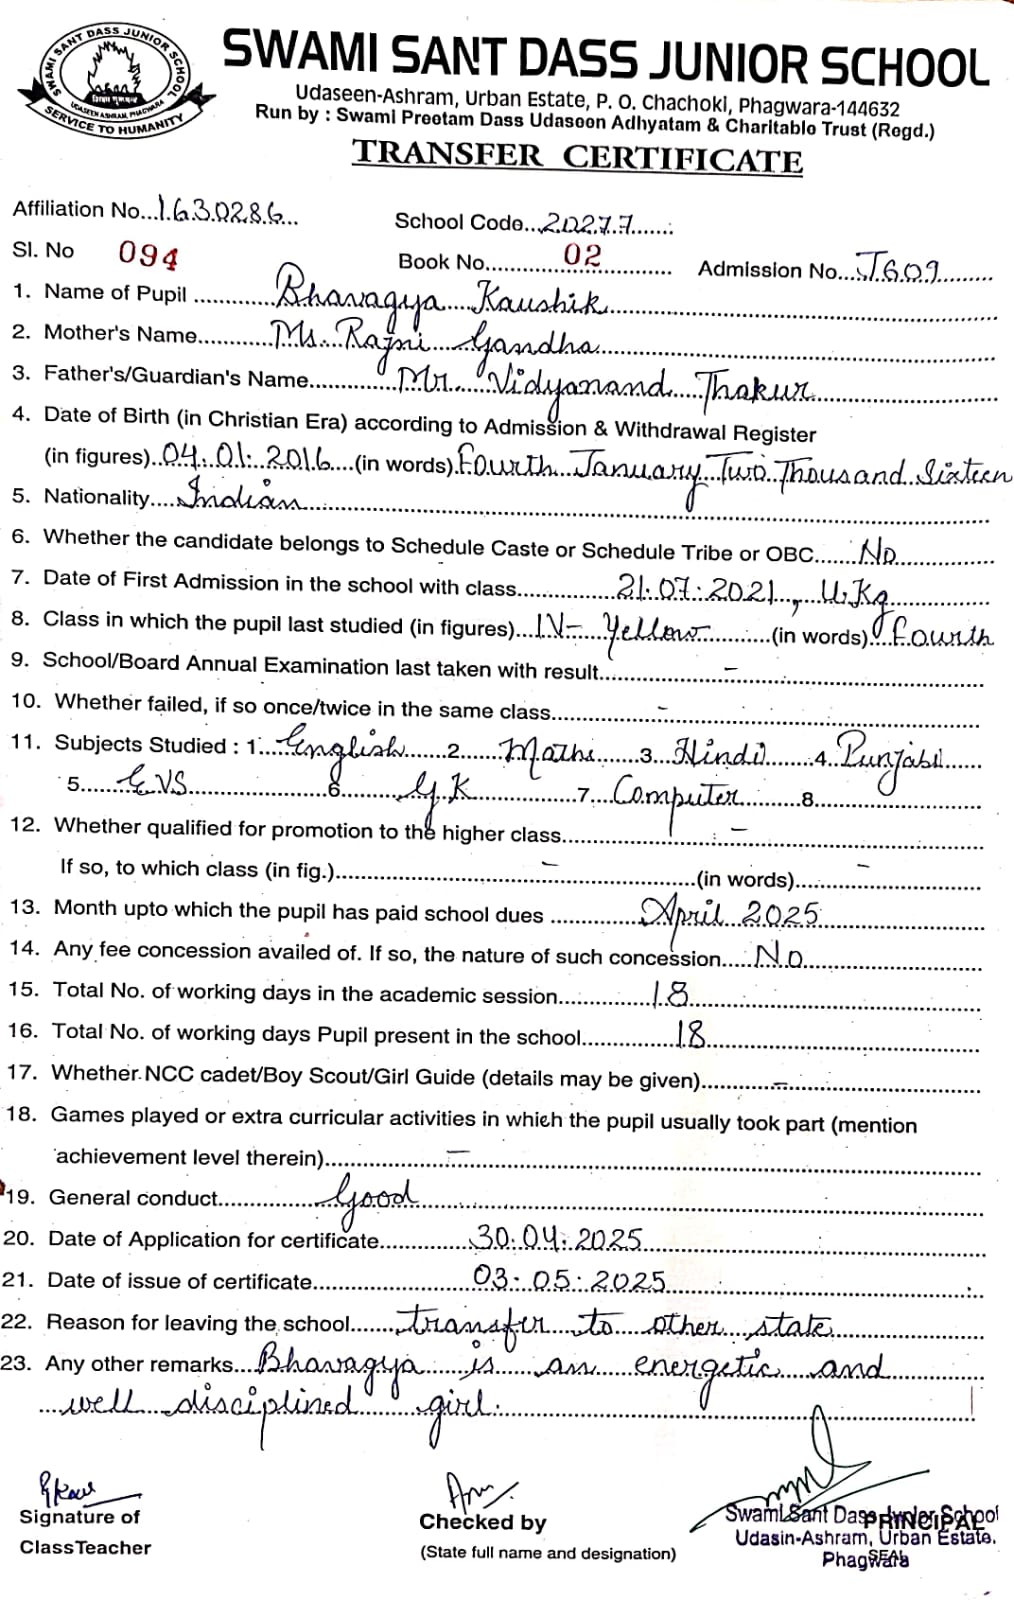 SWAMI SANT DASS JUNIOR SCHOOL
UDASEEN ASHRAM, PHAGWARA
SERVICE TO HUMANITY
SWAMI SANT DASS JUNIOR SCHOOL
Udaseen-Ashram, Urban Estate, P. O. Chachoki, Phagwara-144632
Run by : Swami Preetam Dass Udaseen Adhyatam & Charitable Trust (Regd.)
TRANSFER CERTIFICATE
Affiliation No...1630286... School Code...20277......
Sl. No 094 Book No...02... Admission No...J609...
1. Name of Pupil ...Bhavagya Kaushik...
2. Mother's Name...Ms. Rajni Gandha...
3. Father's/Guardian's Name...Mr. Vidyanand Thakur...
4. Date of Birth (in Christian Era) according to Admission & Withdrawal Register
(in figures)..04.01.2016...(in words).Fourth January Two Thousand Sixteen
5. Nationality...Indian...
6. Whether the candidate belongs to Schedule Caste or Schedule Tribe or OBC...No...
7. Date of First Admission in the school with class...21.07.2021, U.Kg...
8. Class in which the pupil last studied (in figures)...IV- Yellow...(in words)...Fourth
9. School/Board Annual Examination last taken with result...-...
10. Whether failed, if so once/twice in the same class...-...
11. Subjects Studied : 1...English...2...Maths...3...Hindi...4...Punjabi...
5...EVS...6...GK...7...Computer...8...
12. Whether qualified for promotion to the higher class...-...
If so, to which class (in fig.)...-...(in words)...-...
13. Month upto which the pupil has paid school dues ...April 2025...
14. Any fee concession availed of. If so, the nature of such concession...No...
15. Total No. of working days in the academic session...18...
16. Total No. of working days Pupil present in the school...18...
17. Whether NCC cadet/Boy Scout/Girl Guide (details may be given)...-...
18. Games played or extra curricular activities in which the pupil usually took part (mention
achievement level therein)...-...
19. General conduct...Good...
20. Date of Application for certificate...30.04.2025...
21. Date of issue of certificate...03.05.2025...
22. Reason for leaving the school...transfer to other state...
23. Any other remarks...Bhavagya is an energetic and
...well disciplined girl...
Signature of
ClassTeacher
Checked by
(State full name and designation)
Swami Sant Dass Junior School
PRINCIPAL
Udasin-Ashram, Urban Estate.
Phagwara
SEAL